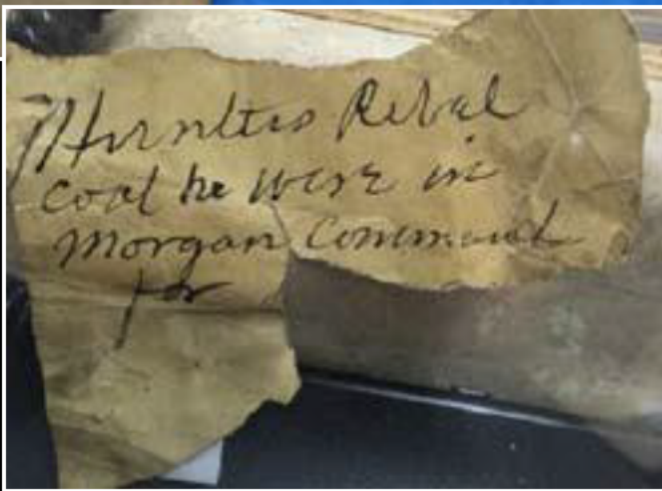 Rebel
coat he wore in
Morgan Command
for